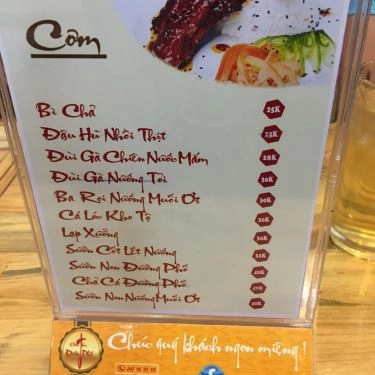 Cơm
Bì Chả 25K
Đậu Hũ Nhồi Thịt 25K
Đùi Gà Chiên Nước Mắm 28K
Đùi Gà Nướng Tỏi 30K
Ba Rọi Nướng Muối Ớt 30K
Cá Lóc Kho Tộ 30K
Lạp Xưởng 30K
Sườn Cốt Lết Nướng 32K
Sườn Non Đường Phố 40K
Chả Cá Đường Phố
Sườn Non Nướng Muối Ớt
Chúc quý khách ngon miệng!